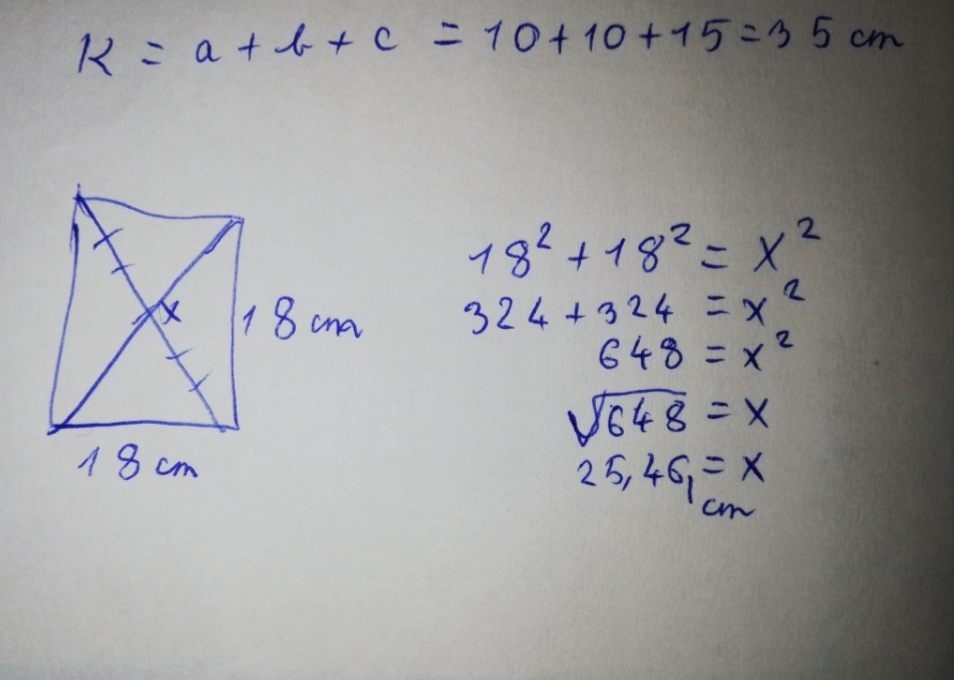 K = a + b + c = 10+10+15=35 cm
x
18 cm
18 cm
18² + 18² = x²
324 + 324 = x²
648 = x²
√648 = x
25,46 cm = x